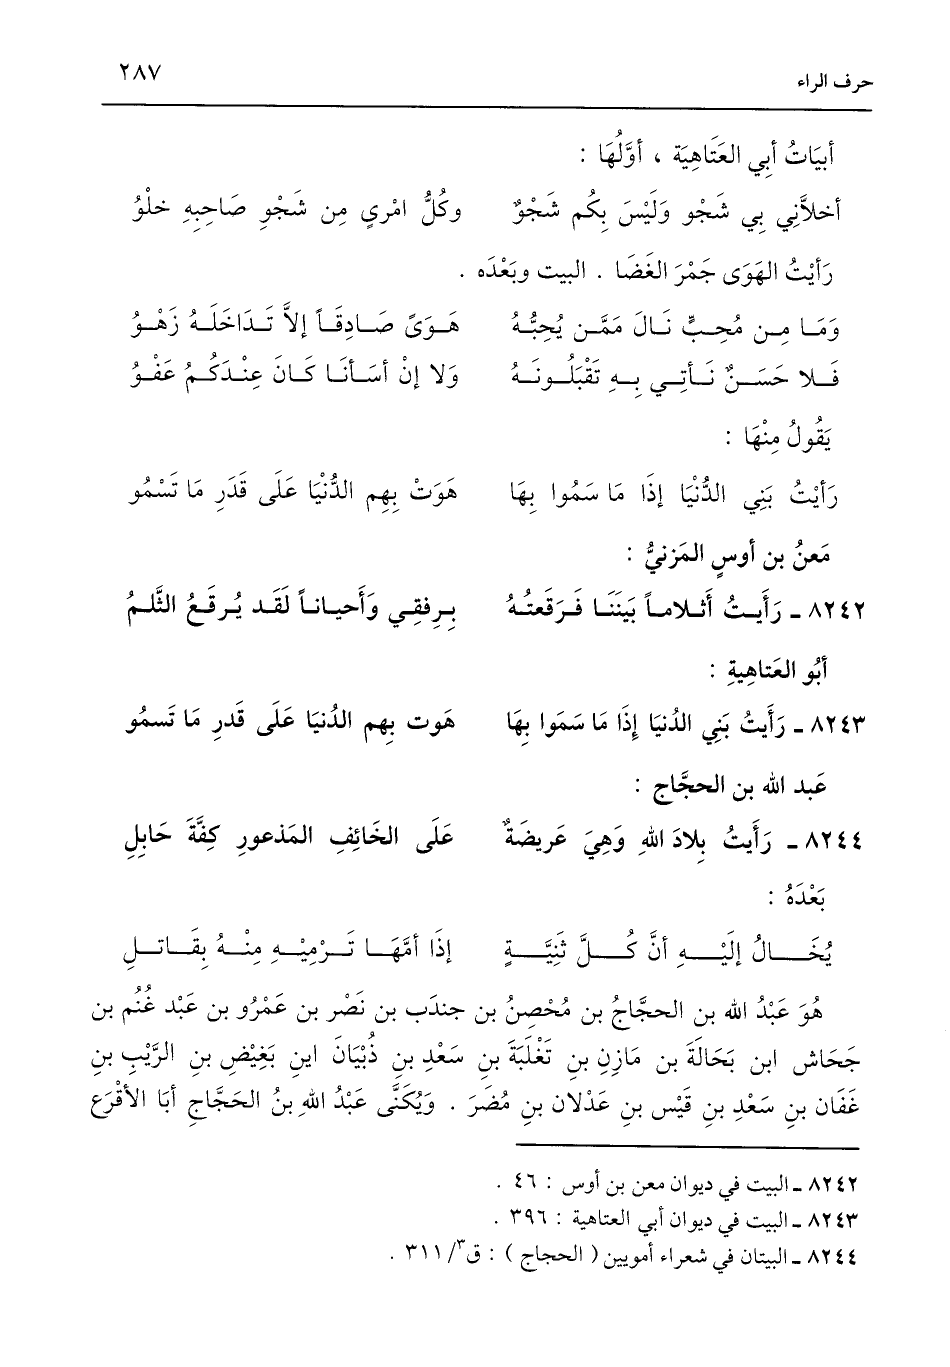 حرف الراء ٢٨٧
أبيَاتُ أبي العَتَاهِيَة ، أوَّلُهَا :
أخلاَّني بِي شَجْو وَلَيْسَ بِكُم شَجْوٌ وكُلُّ امْرِي مِن شَجْوِ صَاحِبِهِ خلْوُ
رَأيْتُ الهَوَى جَمْرَ الغَضَا . البيت وبَعْدَه .
وَمَا مِن مُحِبٍّ نَالَ مَمَّن يُحِبُّهُ هَوَىً صَادِقَاً إلاَّ تَدَاخَلَهُ زَهْوُ
فَلا حَسَنٌ نَأتِي بِهِ تَقْبَلُونَهُ وَلا إنْ أسَأنَا كَانَ عِنْدَكُمُ عَفْوُ
يَقُولُ مِنْهَا :
رَأيْتُ بَنِي الدُّنْيَا إذَا مَا سَمُوا بِهَا هَوَتْ بِهِم الدُّنْيَا عَلَى قَدَرِ مَا تَسْمُو
مَعنُ بن أوسٍ المَزنيُّ :
٨٢٤٢ ـ رَأَيتُ أَثلاماً بَينَنَا فَرَقَعتُهُ بِرِفقِي وَأَحياناً لَقَد يُرقَعُ الثَّلمُ
أَبُو العَتاهِيةِ :
٨٢٤٣ ـ رَأَيتُ بَنِي الدُنيَا إِذَا مَا سَمَوا بِهَا هَوت بِهم الدُنيَا عَلَى قَدرِ مَا تَسمُو
عَبد الله بن الحجَّاج :
٨٢٤٤ ـ رَأَيتُ بِلادَ اللهِ وَهِيَ عَرِيضَةٌ عَلَى الخَائِفِ المَذعورِ كِفَّةَ حَابِلِ
بَعْدَهُ :
يُخَالُ إلَيْهِ أنَّ كُلَّ ثَنِيَّةٍ إذَا أمَّهَا تَرْمِيْهِ مِنْهُ بِقَاتلِ
هُوَ عَبْدُ الله بن الحجَّاجُ بن مُحْصِنُ بن جندَب بن نَصْر بن عَمْرُو بن عَبْد غُنُم بن
جَحَاش ابن بَحَالَة بن مَازِنِ بنِ تَغْلَبَةَ بنِ سَعْدِ بنِ ذُبْيَانَ ابنِ بَغِيْضِ بنِ الرَّيْبِ بنِ
غَفَان بنِ سَعْدِ بنِ قَيْسِ بنِ عَدْلان بنِ مُضَرَ . وَيُكَنَّى عَبْدُ اللهِ بنُ الحَجَّاجِ أبَا الأقْرَع
٨٢٤٢ ـ البيت في ديوان معن بن أوس : ٤٦ .
٨٢٤٣ ـ البيت في ديوان أبي العتاهية : ٣٩٦ .
٨٢٤٤ ـ البيتان في شعراء أمويين ( الحجاج ) : ق٣/ ٣١١ .